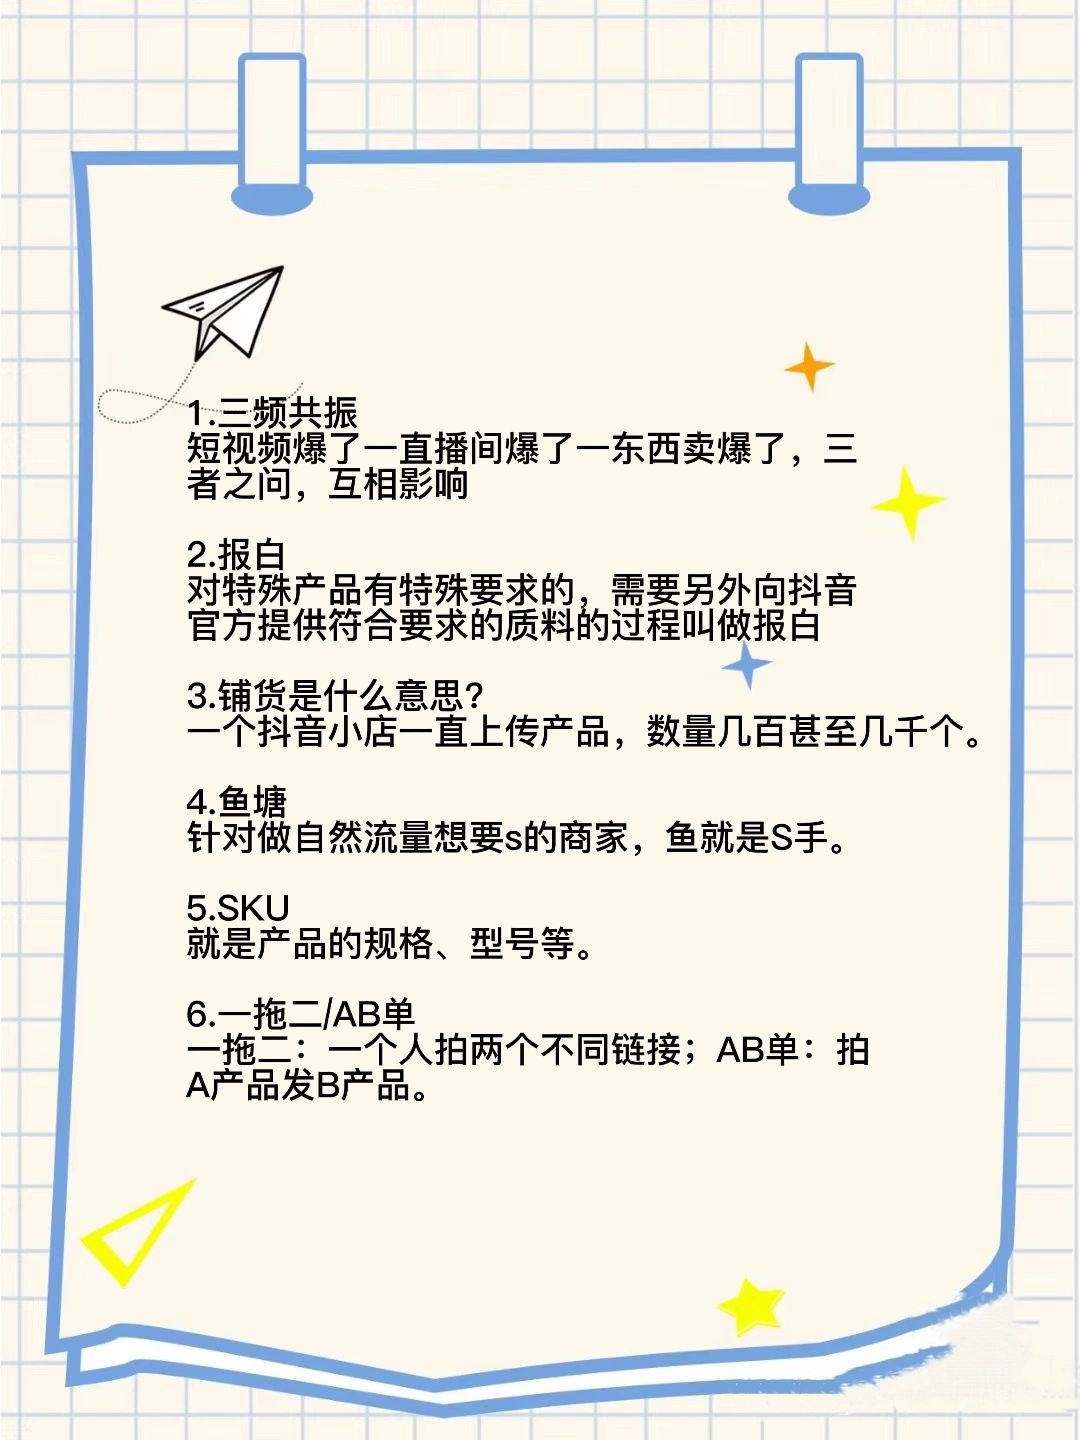 1.三频共振
短视频爆了一直播间爆了一东西卖爆了，三
者之问，互相影响
2.报白
对特殊产品有特殊要求的，需要另外向抖音
官方提供符合要求的质料的过程叫做报白
3.铺货是什么意思？
一个抖音小店一直上传产品，数量几百甚至几千个。
4.鱼塘
针对做自然流量想要s的商家，鱼就是S手。
5.SKU
就是产品的规格、型号等。
6.一拖二/AB单
一拖二：一个人拍两个不同链接；AB单：拍
A产品发B产品。